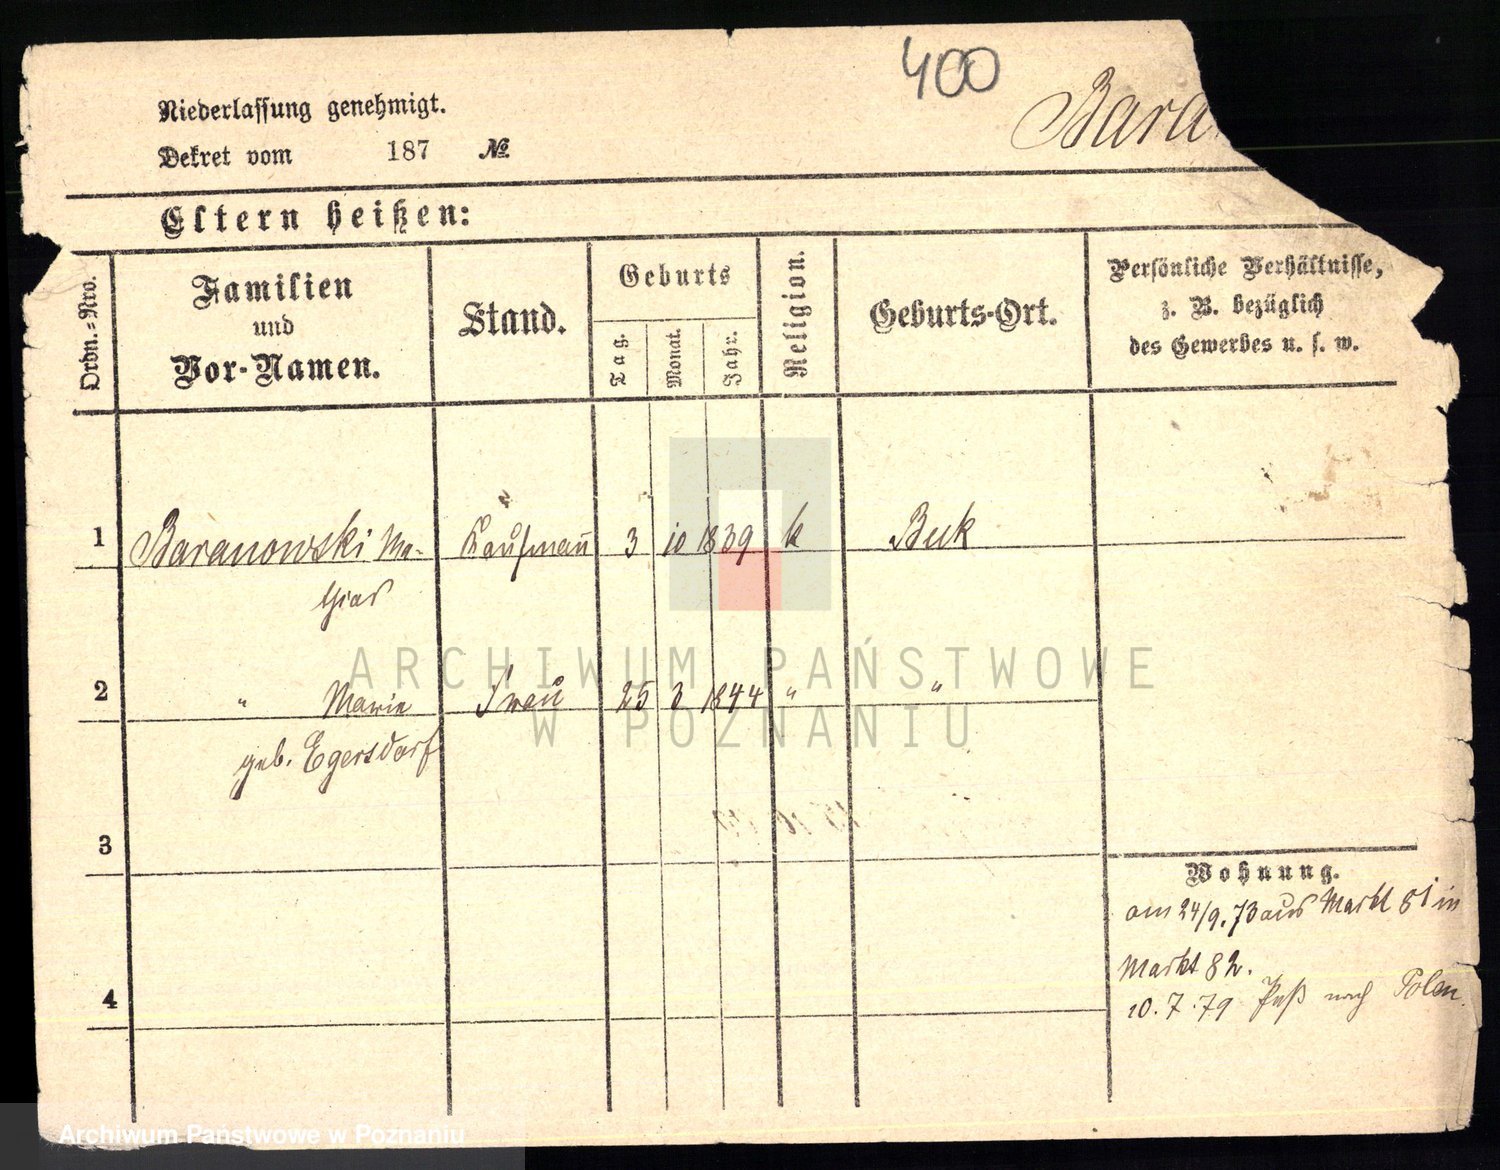 400
Bara
Niederlassung genehmigt.
Dekret vom 187 №
Eltern heißen:
Ordn.=Nro.
Familien
und
Vor-Namen.
Stand.
Geburts
Tag.
Monat.
Jahr.
Religion.
Geburts-Ort.
Persönliche Verhältnisse,
z. B. bezüglich
des Gewerbes u. s. w.
1 Baranowski Ma- Kaufmann 3 10 1839 k Buk
thias
2 " Marie Frau 25 3 1844 " "
geb. Egersdorf
3
4
Wohnung.
am 24/9.73 aus Markt 81 in
Markt 82.
10.7.79 Paß nach Polen.
ARCHIWUM PAŃSTWOWE
W POZNANIU
Archiwum Państwowe w Poznaniu